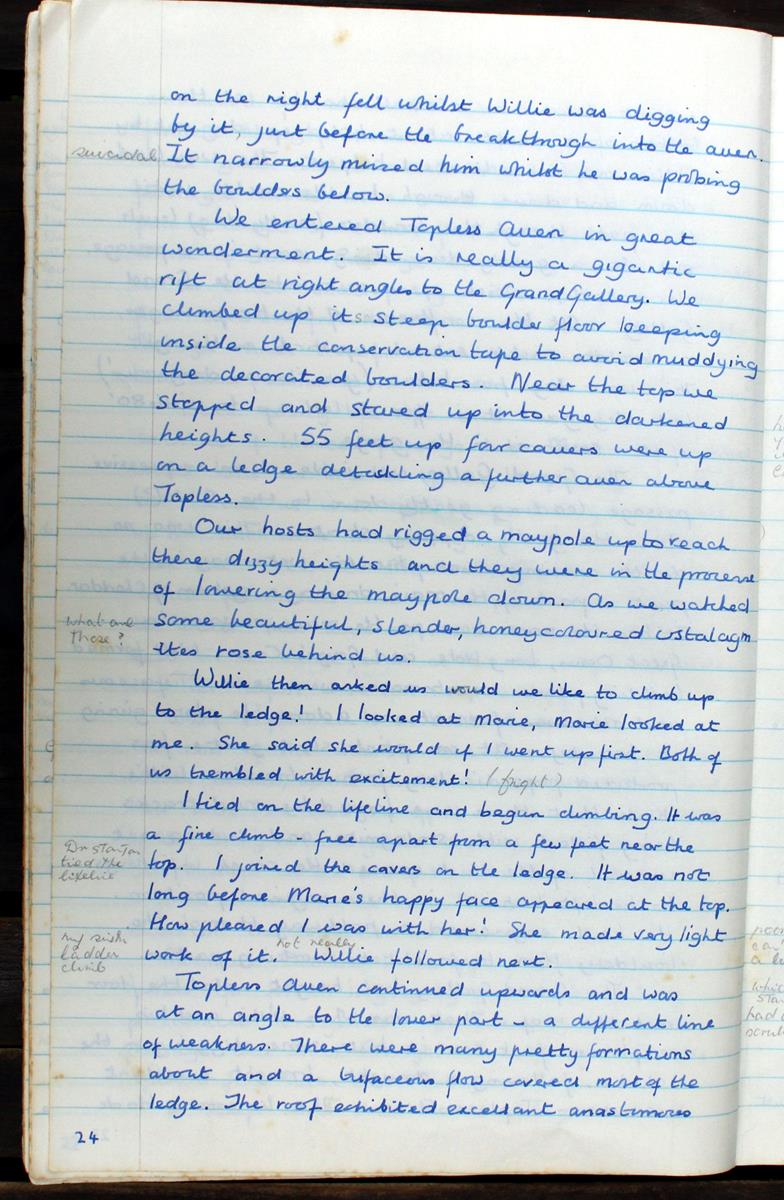 on the right fell whilst Willie was digging
by it, just before the breakthrough into the aven.
suicidal
It narrowly missed him whilst he was probing
the boulders below.
We entered Topless Aven in great
wonderment. It is really a gigantic
rift at right angles to the Grand Gallery. We
climbed up its steep boulder floor keeping
inside the conservation tape to avoid muddying
the decorated boulders. Near the top we
stopped and stared up into the darkened
heights. 55 feet up four cavers were up
on a ledge detackling a further aven above
Topless.
Our hosts had rigged a maypole up to reach
there dizzy heights and they were in the process
of lowering the maypole down. As we watched
what are
those?
some beautiful, slender, honeycoloured stalagm
ites rose behind us.
Willie then asked us would we like to climb up
to the ledge! I looked at Marie, Marie looked at
me. She said she would if I went up first. Both of
us trembled with excitement! (fright?)
I tied on the lifeline and begun climbing. It was
a fine climb - free apart from a few feet near the
Dr Stanton
tied the
lifeline
top. I joined the cavers on the ledge. It was not
long before Marie's happy face appeared at the top.
How pleased I was with her! She made very light
my sixth
ladder
climb
not really
work of it. Willie followed next.
Topless Aven continued upwards and was
at an angle to the lower part - a different line
of weakness. There were many pretty formations
about and a tufaceous flow covered most of the
ledge. The roof exhibited excellant anastimoses
24